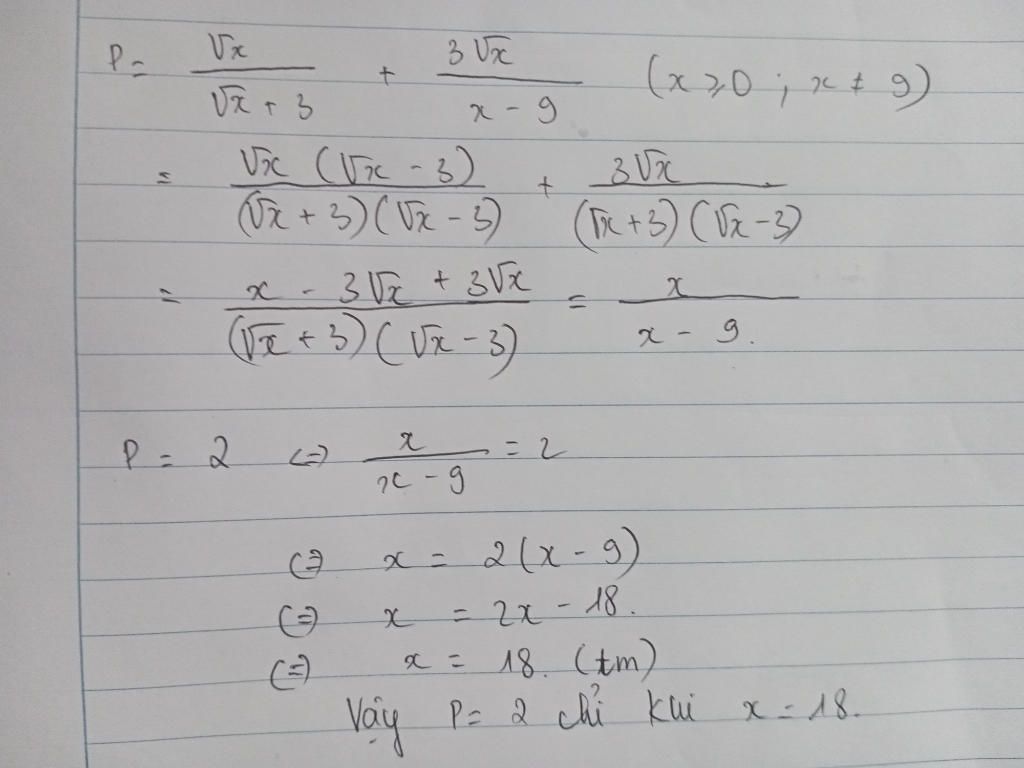 P = √x / (√x + 3) + 3√x / (x - 9) (x ⩾ 0 ; x ≠ 9)
= √x (√x - 3) / (√x + 3)(√x - 3) + 3√x / (√x + 3)(√x - 3)
= x - 3√x + 3√x / (√x + 3)(√x - 3) = x / x - 9.
P = 2 <=> x / x - 9 = 2
<=> x = 2(x - 9)
<=> x = 2x - 18.
<=> x = 18. (tm)
Vậy P = 2 chỉ khi x = 18.